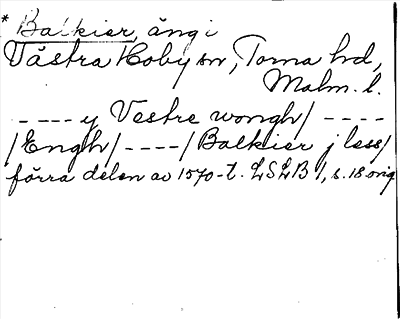 * Balkier, äng i
Västra Hoby sn, Torna hd,
Malm. l.
---- y Vestre wongh/ ----
/Engh/ ----/ Balkier j less/
förra delen av 1570-t. LSLB 1, s. 18 orig.